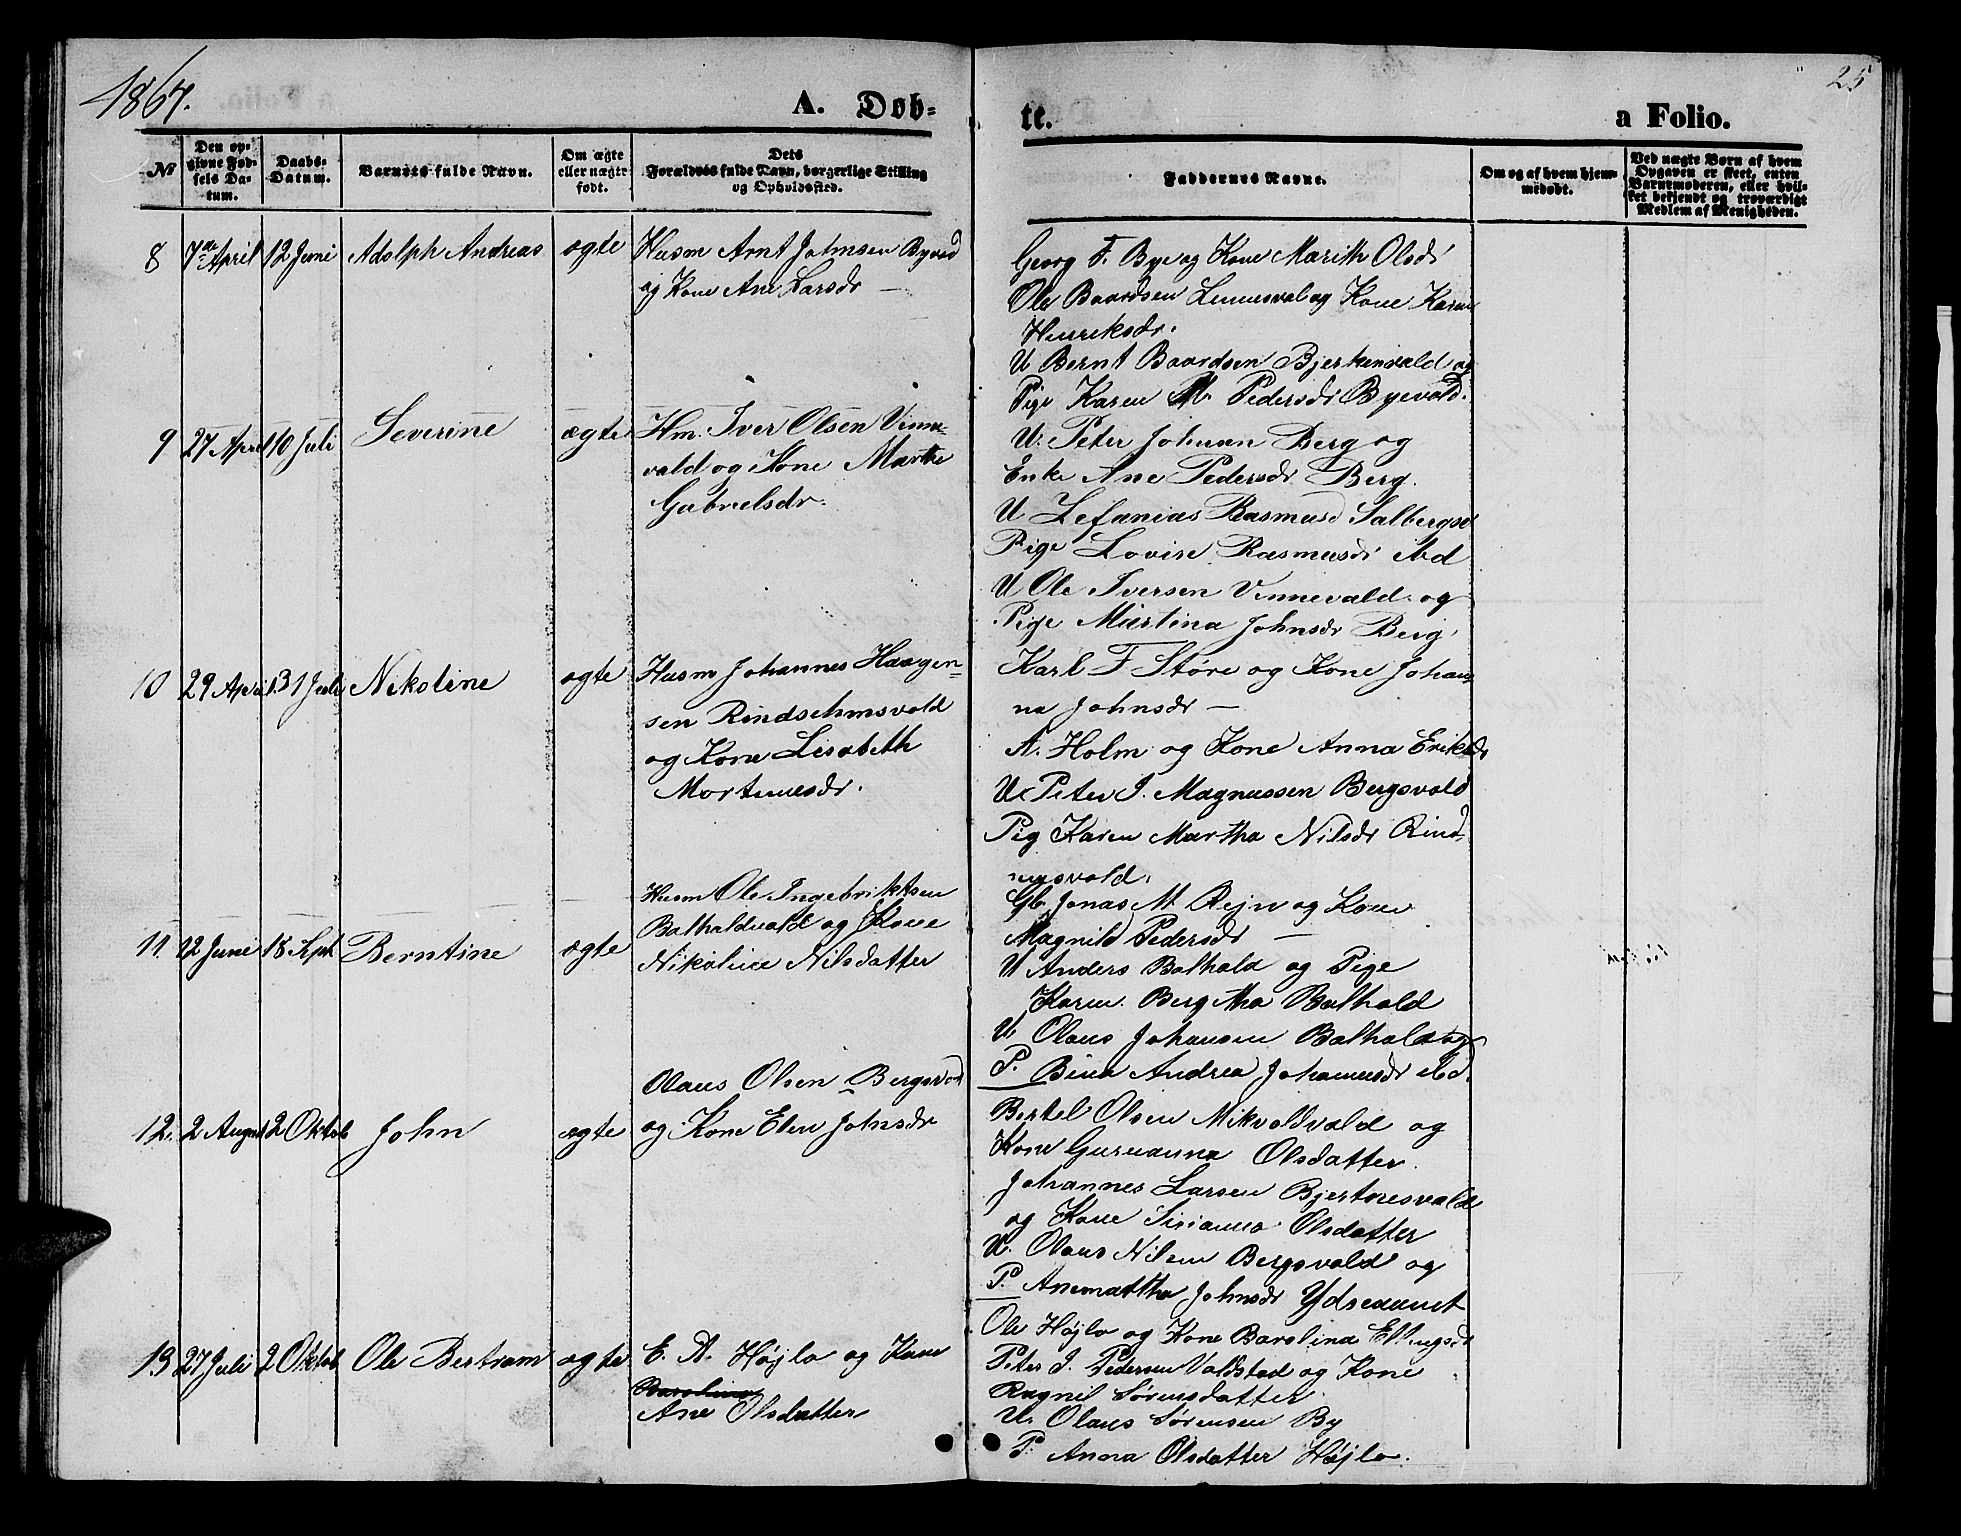 1867.
A. Döb=
te.
a Folio.
25
№
Den op-
givne Fød-
sels Da-
tum.
Daabs-
Datum.
Barnets fulde Navn.
Om ægte
eller uægte
født.
Dets
Forældres fulde Navn, borgerlige Stilling
og Opholdssted.
Faddernes Navne.
Om og af hvem hjem-
medøbt.
Ved uægte Børn af hvem
Opgaven er skeet, enten
Barnemoderen, eller hvil-
ket bekjendt og troværdigt
Medlem af Menigheden.
8 7de April 12 Juni Adolph Andreas ægte
Husm Arnt Johnsen Byvad
og Kone Ane Larsdr —
Georg F. Bye og Kone Marith Olsdr
Ole Baardsen og Kone Karen
Henriksdr.
U Bernt Baardsen Bjerkenvald og
Pige Karen M. Pedersdr Byevald.
9 27 April 10 Juli Severine ægte
Hm. Iver Olsen Vinne-
vald og Kone Marthe
Gabrielsdr.
U. Peter Johnsen Berg og
Enke Ane Pedersdr Berg.
U Zefanias Rasmus Salbergsv
Pige Lovise Rasmusdr ibd
U Ole Iversen Vinnevald og
Pige Martina Johnsdr Berg.
10 29 April 31 Juli Nikoline ægte
Husm Johannes Haagen=
sen Rindsehmsvald
og Kone Lisabeth
Mortinusdr.
Karl F Støre og Kone Johan-
na Johnsdr —
A. Holm og Kone Anna Eriksdr
U. Peter J. Magnussen Bergsvald
Pig Karen Martha Nilsdr Rind-
msvald.
11. 12 Juni 18 Sept Berntine ægte
Husm Ole Ingebriktsen
Balhaldvald og Kone
Nikoline Nilsdatter
Gb. Jonas M. Rejn og Kone
Magnild Pedersdr —
U Anders Balhald og Pige
Karen Bergitha Balhald
U Olaus Johansen Balhald og
P. Bina Andrea Johannesdr ibd.
12. 2 August 2 Oktob John ægte
Olaus Olsen Bergsvad
og Kone Elen Johnsdr
Bertel Olsen Mikvoldvald og
Kone Guruanna Olsdatter.
Johannes Larsen Bjertnesvald
og Kone Sirianna Olsdatter
U. Olaus Nilsen Bergsvald og
P. Anemartha Johnsdr Ydseaunet
13 27 Juli 2 Oktob. Ole Bertram ægte
E. A. Højlo og Kone
Barolina
Ane Olsdatter
Ole Højlo og Kone Barolina Ellingsdt
Peter J. Pedersen Valdstad og Kone
Ragnil Sørensdatter
U. Olaus Sørensen By
P. Anna Olsdatter Højlo.